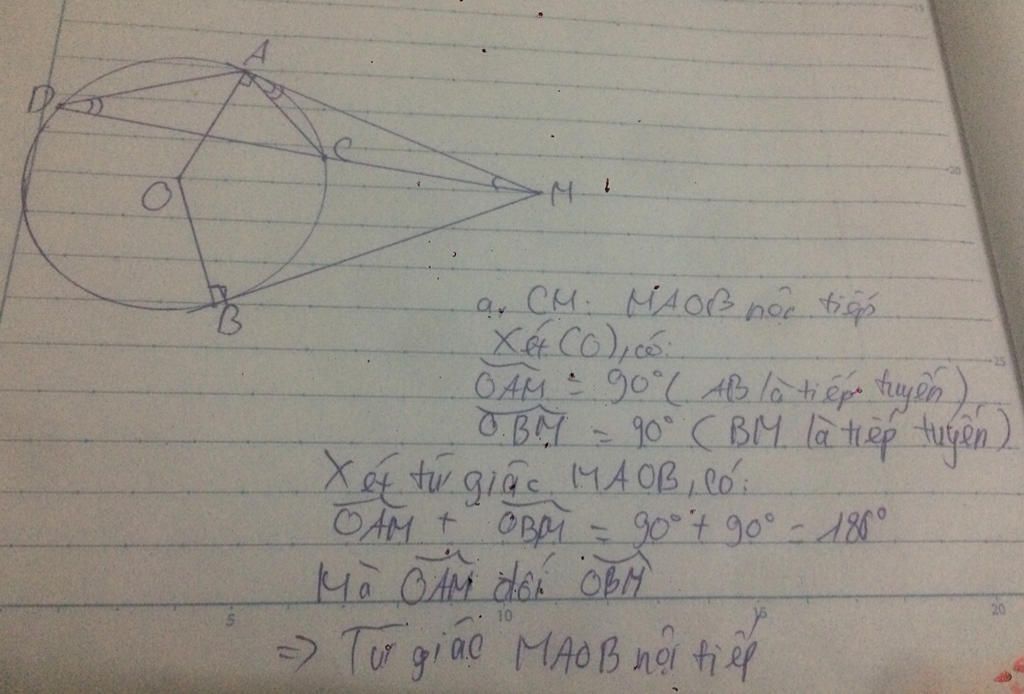 A
D
C
O
M
B
a, CM: MAOB nội tiếp
Xét (O), có:
OAM = 90° ( AB là tiếp tuyến )
OBM = 90° ( BM là tiếp tuyến )
Xét tứ giác MAOB, có:
OAM + OBM = 90° + 90° = 180°
Mà OAM đối OBM
=> Tứ giác MAOB nội tiếp
15
20
25
5
10
15
20